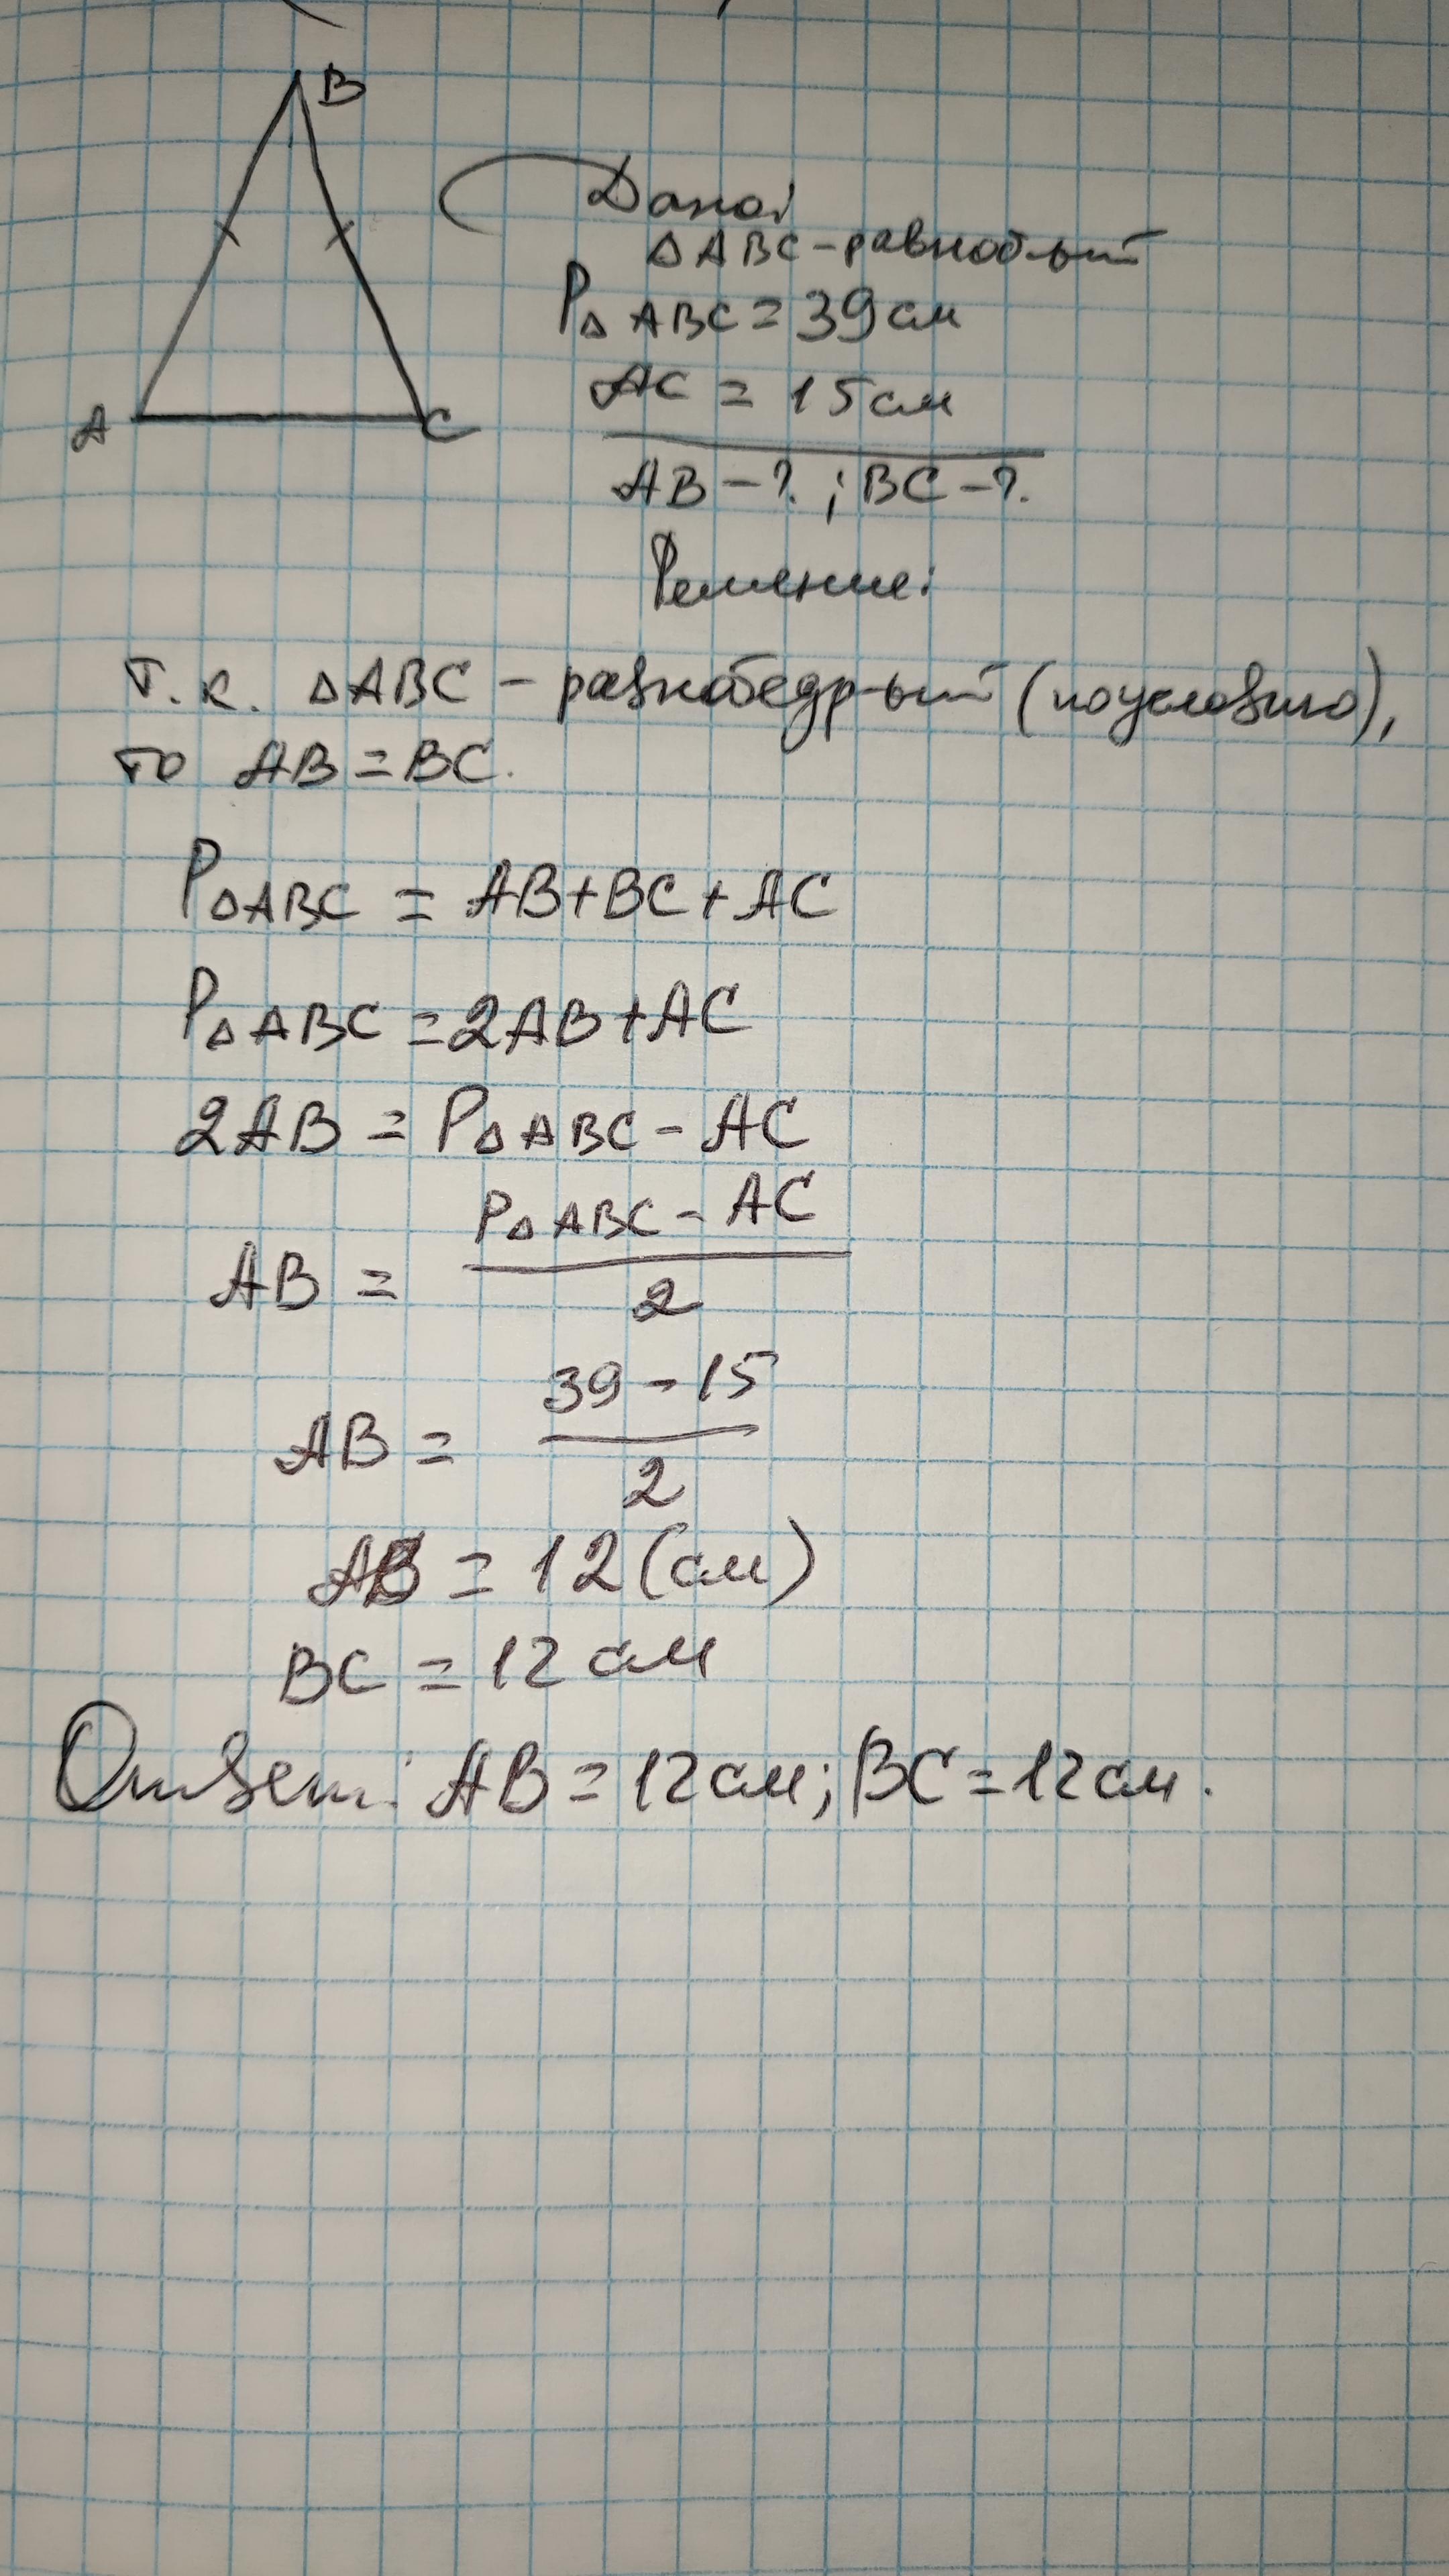 B
A
C
Дано:
△ABC - равнобр-ый
P△ABC = 39 см
AC = 15 см
AB - ?; BC - ?
Решение:
Т.к. △ABC - равнобедр-ый (по условию),
то AB = BC.
P△ABC = AB + BC + AC
P△ABC = 2AB + AC
2AB = P△ABC - AC
AB = (P△ABC - AC) / 2
AB = (39 - 15) / 2
AB = 12 (см)
BC = 12 см
Ответ: AB = 12 см; BC = 12 см.